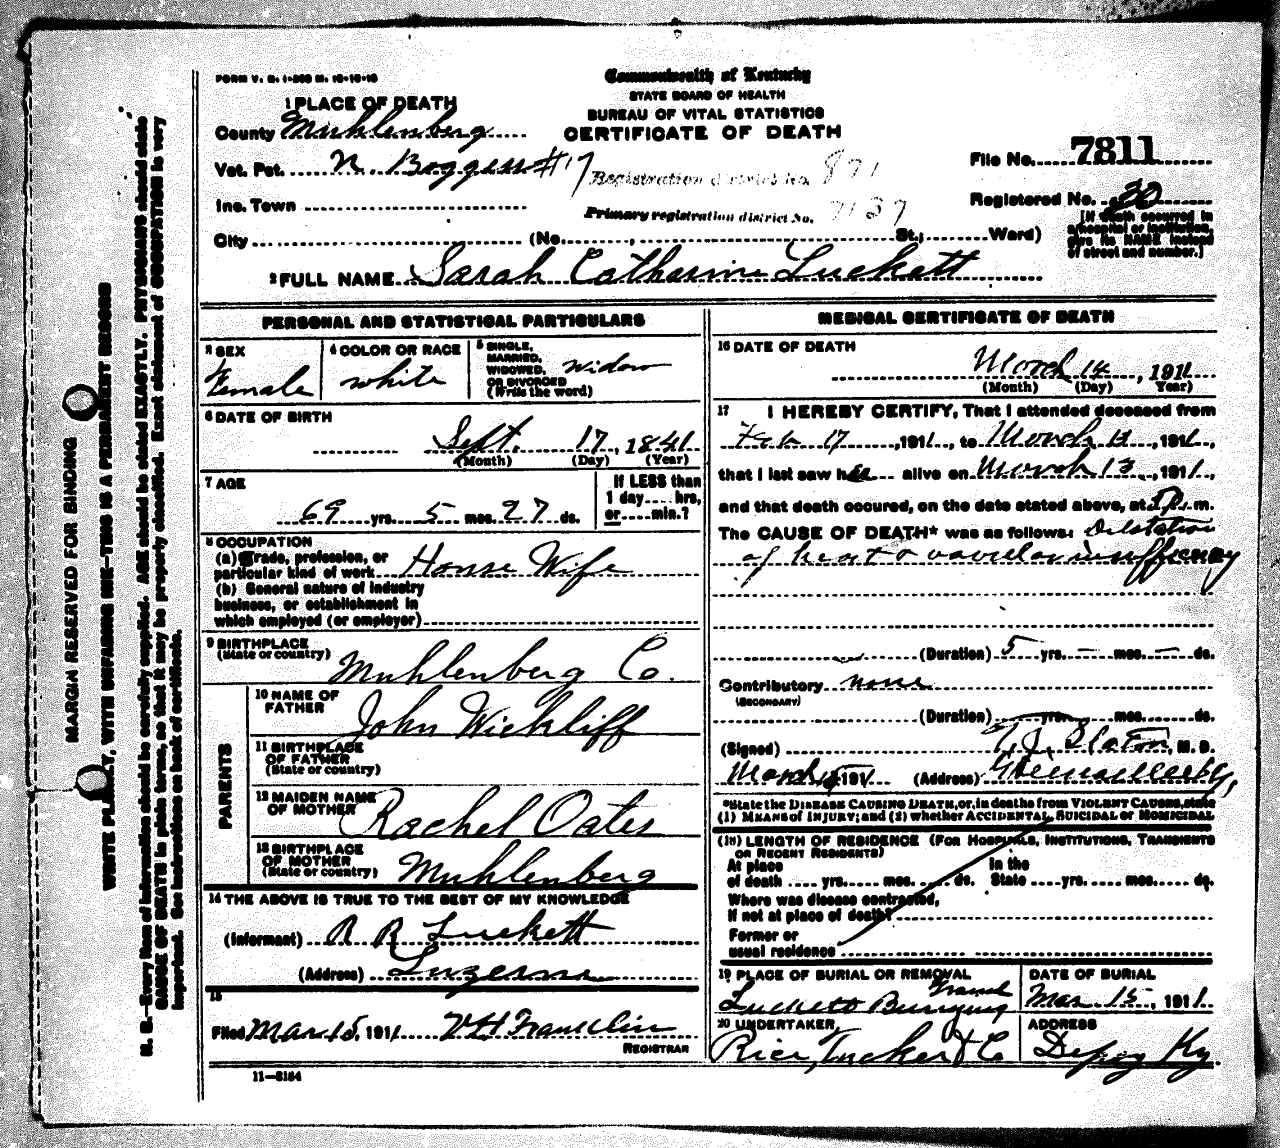 FORM V. S. 1-200 M. 10-10-10
Commonwealth of Kentucky
STATE BOARD OF HEALTH
BUREAU OF VITAL STATISTICS
CERTIFICATE OF DEATH
1 PLACE OF DEATH
County Muhlenberg
Vot. Pct. N. Boggess #17
Inc. Town
City (No. , St.; Ward)
Registration district No. 871
Primary registration district No. 7137
File No. 7811
Registered No. 30
[If death occurred in
a hospital or institution,
give its NAME instead
of street and number.]
2 FULL NAME Sarah Catharine Luckett
PERSONAL AND STATISTICAL PARTICULARS
3 SEX
Female
4 COLOR OR RACE
white
5 SINGLE,
MARRIED,
WIDOWED,
OR DIVORCED
(Write the word)
Widow
6 DATE OF BIRTH
Sept. 17, 1841
(Month) (Day) (Year)
7 AGE
69 yrs. 5 mos. 27 ds.
If LESS than
1 day.... hrs,
or.....min.?
8 OCCUPATION
(a) Trade, profession, or
particular kind of work House Wife
(b) General nature of industry
business, or establishment in
which employed (or employer)
9 BIRTHPLACE
(State or country) Muhlenberg Co.
PARENTS
10 NAME OF
FATHER John Wickliff
11 BIRTHPLACE
OF FATHER
(State or country)
12 MAIDEN NAME
OF MOTHER Rachel Oates
13 BIRTHPLACE
OF MOTHER
(State or country) Muhlenberg
14 THE ABOVE IS TRUE TO THE BEST OF MY KNOWLEDGE
(Informant) R R Luckett
(Address) Luzerne
15
Filed Mar 15, 1911 V H Franklin
REGISTRAR
11-8184
MEDICAL CERTIFICATE OF DEATH
16 DATE OF DEATH
March 14, 1911
(Month) (Day) Year)
17 I HEREBY CERTIFY, That I attended deceased from
Feb 17, 1911, to March 1911,
that I last saw her alive on March 13, 1911,
and that death occured, on the date stated above, at m.
The CAUSE OF DEATH* was as follows: Dilatation
of heart & insufficiency
(Duration) 5 yrs. - mos. - ds.
Contributory none
(SECONDARY)
(Duration) yrs. mos. ds.
(Signed) T. J. Slaton, M. D.
March 15 1911 (Address) Greenville Ky,
*State the DISEASE CAUSING DEATH, or, in deaths from VIOLENT CAUSES, state
(1) MEANS of INJURY; and (2) whether ACCIDENTAL, SUICIDAL or HOMICIDAL
(18) LENGTH OF RESIDENCE (FOR HOSPITALS, INSTITUTIONS, TRANSIENTS
OR RECENT RESIDENTS)
At place
of death .... yrs. mos. ds.
In the
State yrs. mos. ds.
Where was disease contracted,
if not at place of death?
Former or
usual residence
19 PLACE OF BURIAL OR REMOVAL
Lucketts Burying Ground
DATE OF BURIAL
Mar 15, 1911.
20 UNDERTAKER
Rice, Tucker & Co
ADDRESS
Depoy Ky.
MARGIN RESERVED FOR BINDING
WRITE PLAINLY, WITH UNFADING INK—THIS IS A PERMANENT RECORD
N. B.—Every item of information should be carefully supplied. AGE should be stated EXACTLY. PHYSICIANS should state
CAUSE OF DEATH in plain terms, so that it may be properly classified. Exact statement of OCCUPATION is very
important. See instructions on back of certificate.